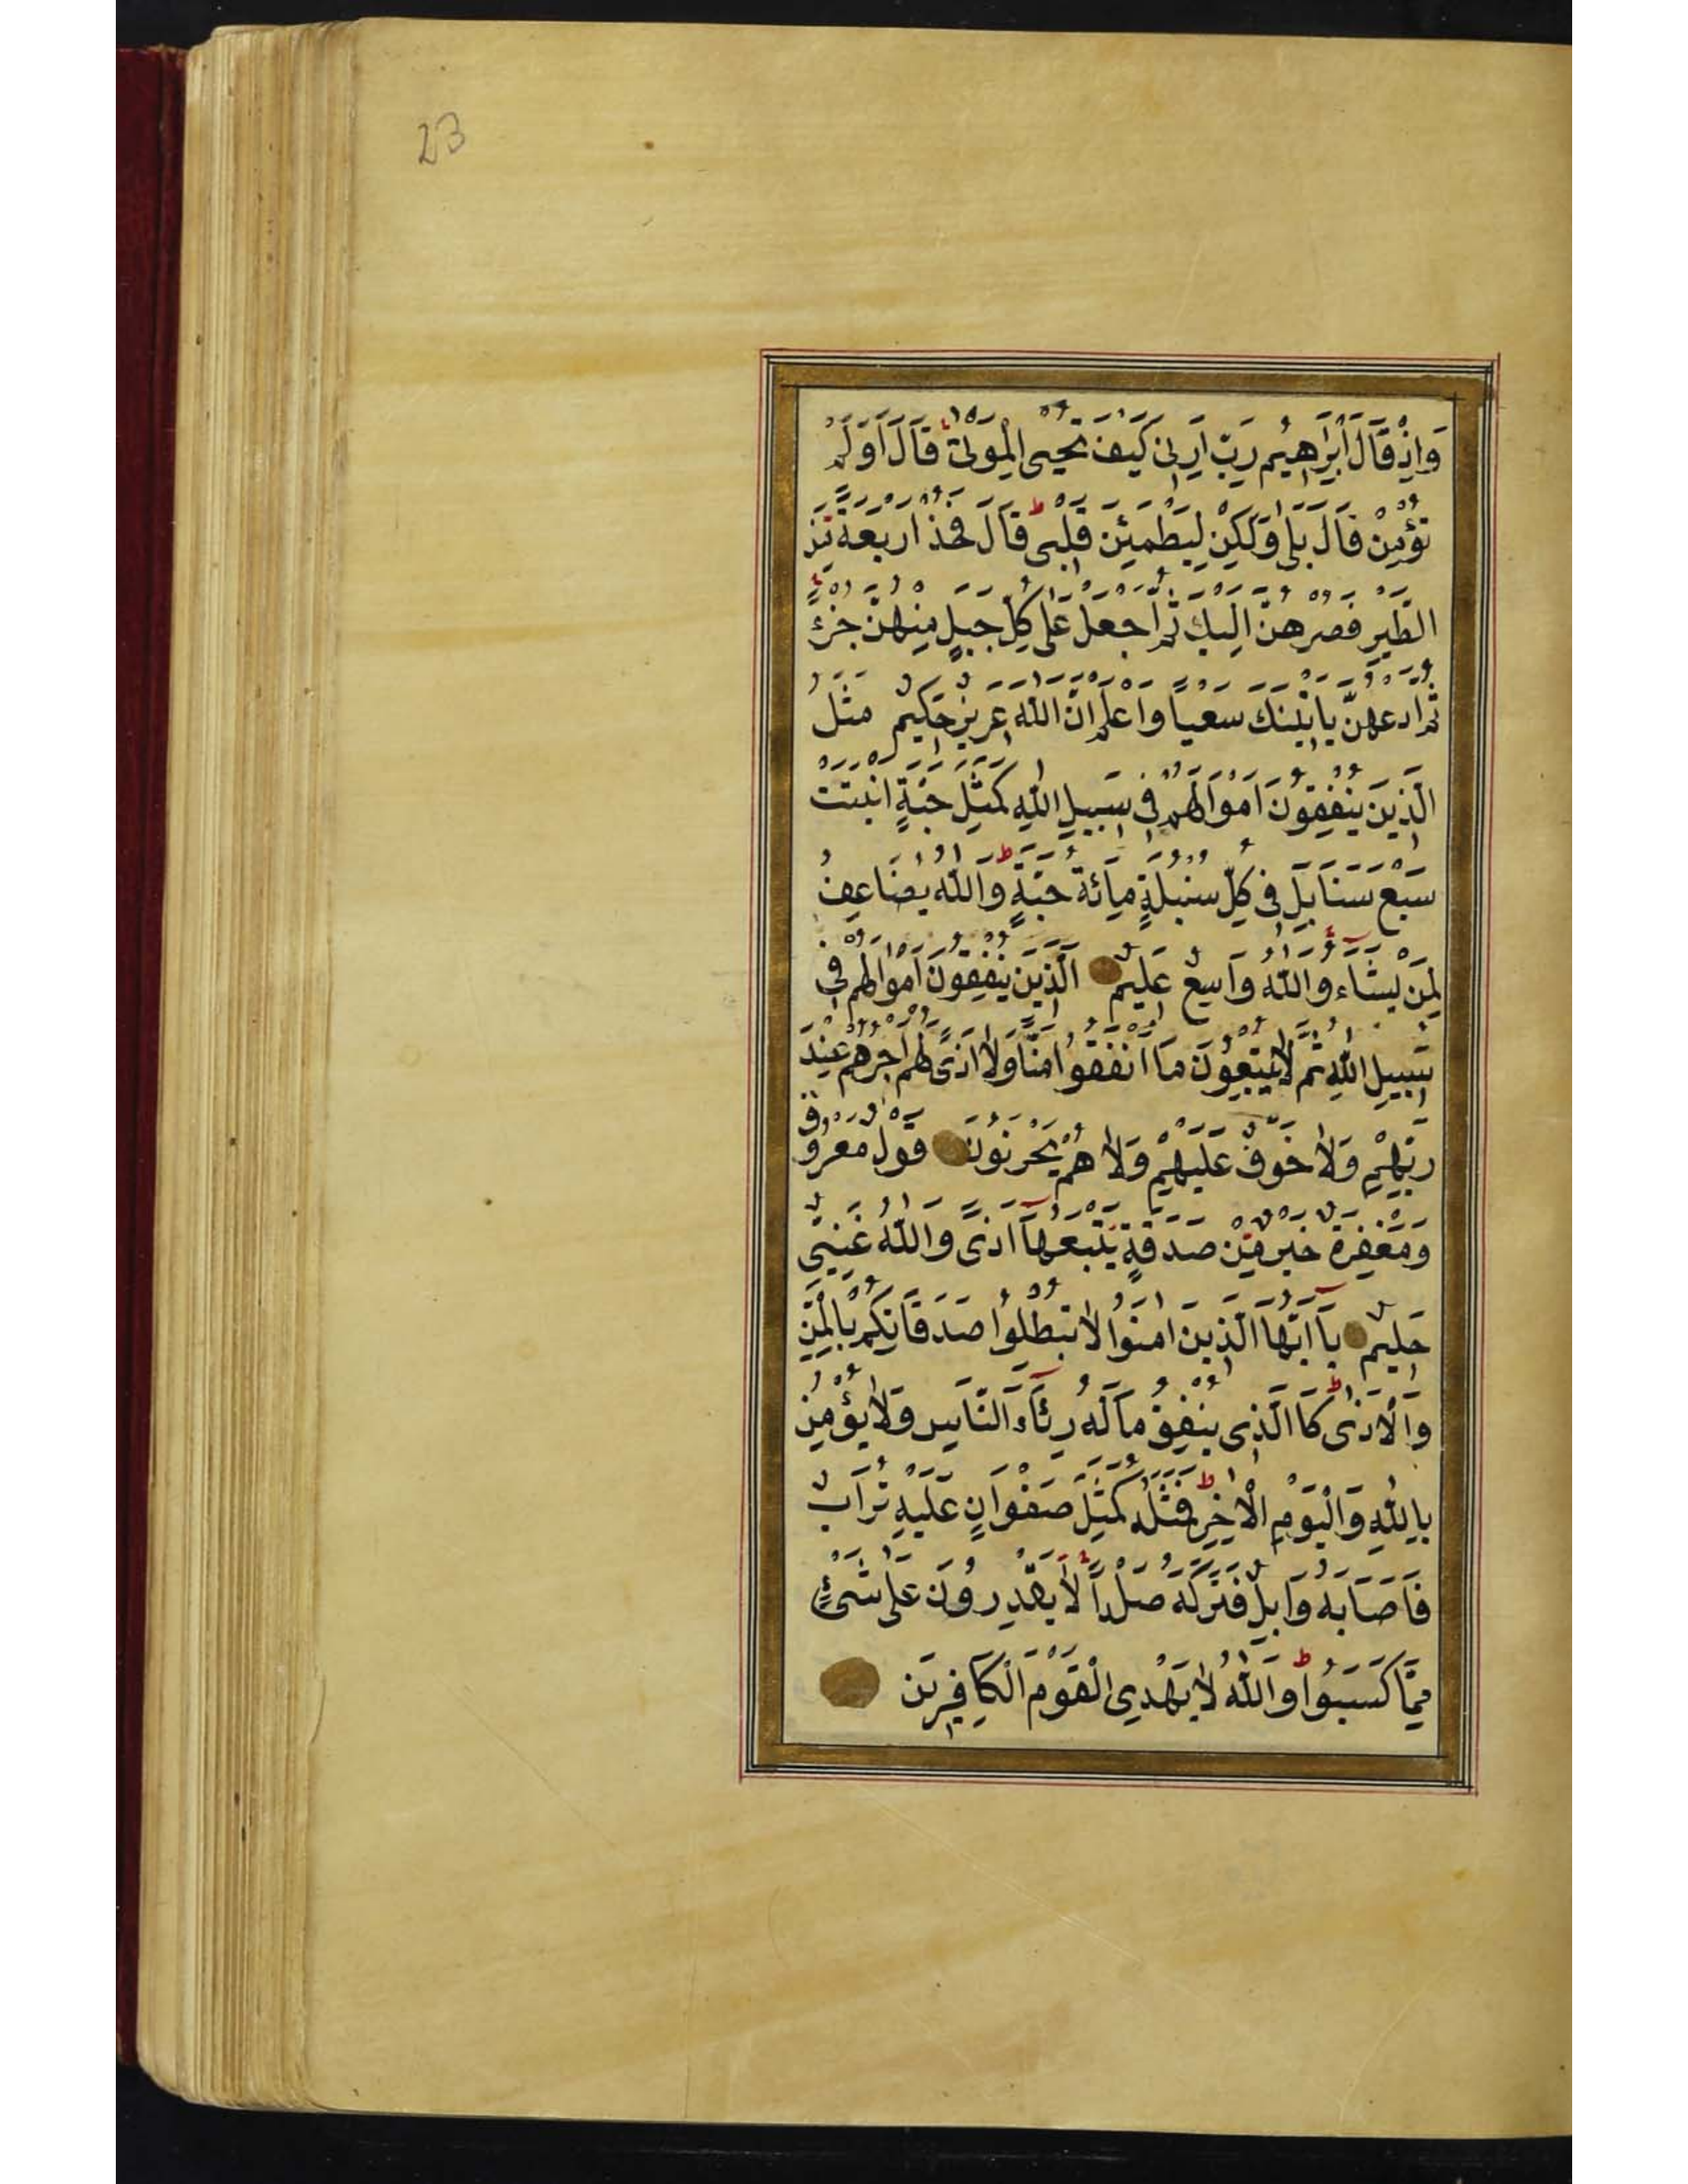 23
وَاِذْ قَالَ اِبْرَاهِيمُ رَبِّ اَرِنِى كَيْفَ تُحْيِى الْمَوْتٰى قَالَ اَوَلَمْ
تُؤْمِنْ قَالَ بَلٰى وَلٰكِنْ لِيَطْمَئِنَّ قَلْبِى ط قَالَ فَخُذْ اَرْبَعَةً مِنَ
الطَّيْرِ فَصُرْهُنَّ اِلَيْكَ ثُمَّ اجْعَلْ عَلٰى كُلِّ جَبَلٍ مِنْهُنَّ جُزْءً
ثُمَّ ادْعُهُنَّ يَاْتِينَكَ سَعْيًا وَاعْلَمْ اَنَّ اللّٰهَ عَزِيزٌ حَكِيمٌ مَثَلُ
الَّذِينَ يُنْفِقُونَ اَمْوَالَهُمْ فِى سَبِيلِ اللّٰهِ كَمَثَلِ حَبَّةٍ اَنْبَتَتْ
سَبْعَ سَنَابِلَ فِى كُلِّ سُنْبُلَةٍ مِائَةُ حَبَّةٍ ط وَاللّٰهُ يُضَاعِفُ
لِمَنْ يَشَاءُ وَاللّٰهُ وَاسِعٌ عَلِيمٌ اَلَّذِينَ يُنْفِقُونَ اَمْوَالَهُمْ فِى
سَبِيلِ اللّٰهِ ثُمَّ لَا يُتْبِعُونَ مَا اَنْفَقُوا مَنًّا وَلَا اَذًى لَهُمْ اَجْرُهُمْ عِنْدَ
رَبِّهِمْ وَلَا خَوْفٌ عَلَيْهِمْ وَلَا هُمْ يَحْزَنُونَ قَوْلٌ مَعْرُوفٌ
وَمَغْفِرَةٌ خَيْرٌ مِنْ صَدَقَةٍ يَتْبَعُهَا اَذًى وَاللّٰهُ غَنِىٌّ
حَلِيمٌ يَا اَيُّهَا الَّذِينَ اٰمَنُوا لَا تُبْطِلُوا صَدَقَاتِكُمْ بِالْمَنِّ
وَالْاَذٰى ط كَا الَّذِى يُنْفِقُ مَالَهُ رِئَاءَ النَّاسِ وَلَا يُؤْمِنُ
بِاللّٰهِ وَالْيَوْمِ الْاٰخِرِ ط فَمَثَلُهُ كَمَثَلِ صَفْوَانٍ عَلَيْهِ تُرَابٌ
فَاَصَابَهُ وَابِلٌ فَتَرَكَهُ صَلْدًا لَا يَقْدِرُونَ عَلٰى شَىْءٍ
مِمَّا كَسَبُوا ط وَاللّٰهُ لَا يَهْدِى الْقَوْمَ الْكَافِرِينَ